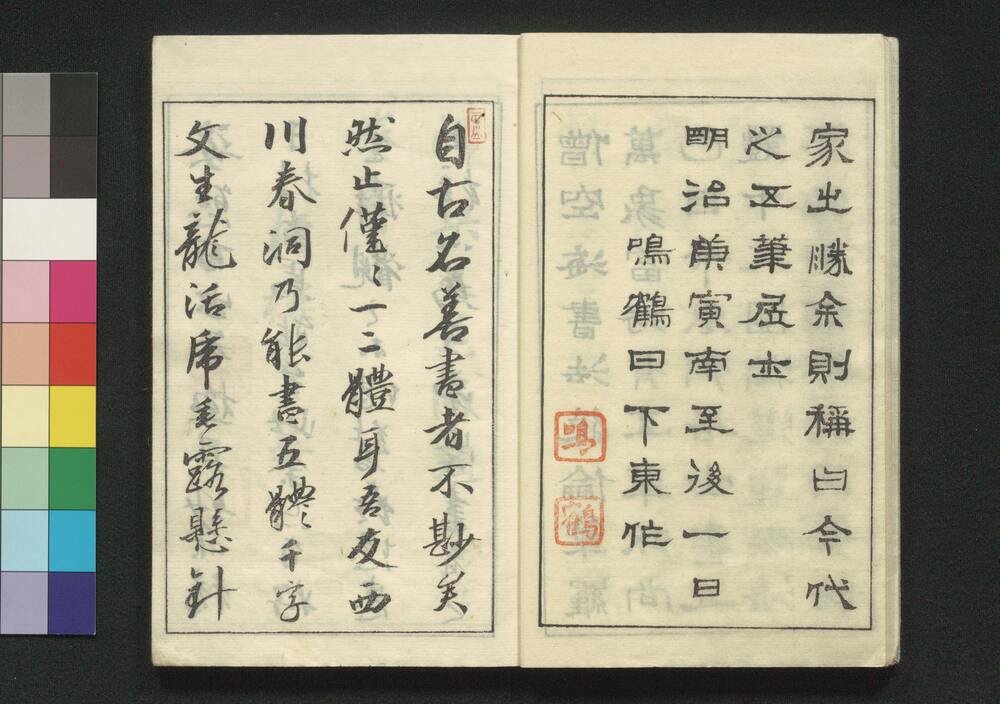 家出勝余則稱曰今代
之五筆居士
明治庚寅南至後一日
鳴鶴日下東作
鳴
鶴
自古名善書者不尠矣
然止僅〻一二體耳吾友西
川春洞乃能書五體千字
文生龍活席垂露懸針